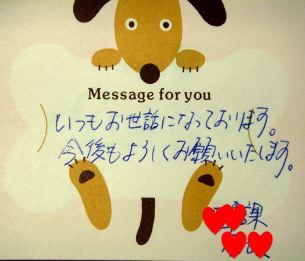 Message for you
いつもお世話になっております。
今後もよろしくお願いいたします。
課